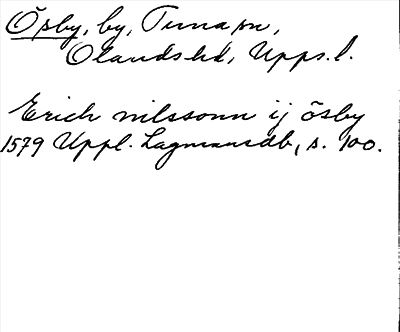 Ösby, by, Tuna sn,
Olands hd, Upps. l.
Erich nilssonn ij ösby
1579 Uppl. Lagmansdb, s. 100.